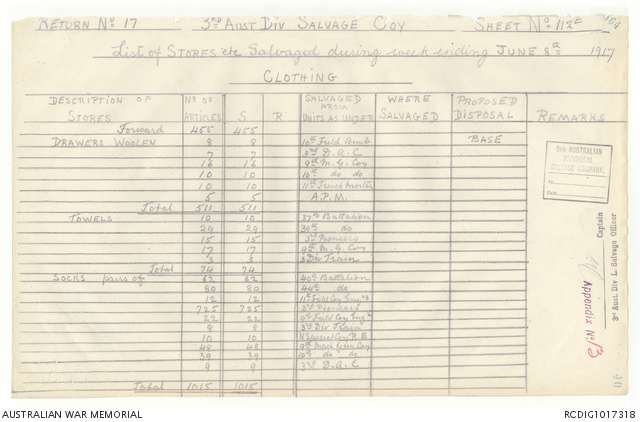 RETURN No 17 3rd Aust Div SALVAGE COY SHEET No 112E
List of STORES etc Salvaged during week ending JUNE 8th 1917
CLOTHING
DESCRIPTION OF STORES No OF ARTICLES S R SALVAGED FROM UNITS AS UNDER WHERE SALVAGED PROPOSED DISPOSAL REMARKS
Forward 455 455
DRAWERS WOOLEN 8 8 10th Field Amb BASE
7 7 3rd D.A.C
16 16 9th M.G. Coy
10 10 10th do do
10 10 11th Trench Mortar
5 5 A.P.M.
Total 511 511
TOWELS 10 10 37th Battalion
29 29 do
15 15 3rd Pioneers
17 17 9th M.G. Coy
3 3 3 Div Train
Total 74 74
SOCKS pairs of 62 62 40th Battalion
80 80 44th do
12 12 11th Field Coy Eng's
725 725 3rd
22 22 Field Coy Eng's
8 8 3rd Div Train
10 10 Coy R.E
48 48 9th Mach Gun Coy
39 39 10th do do
9 9 3rd D.A.C
Total 1015 1015
3RD AUSTRALIAN
DIVISIONAL
SALVAGE COMPANY
Captain
3rd Aust. Div L. Salvage Officer
Appendix No 13
AUSTRALIAN WAR MEMORIAL RCDIG1017318